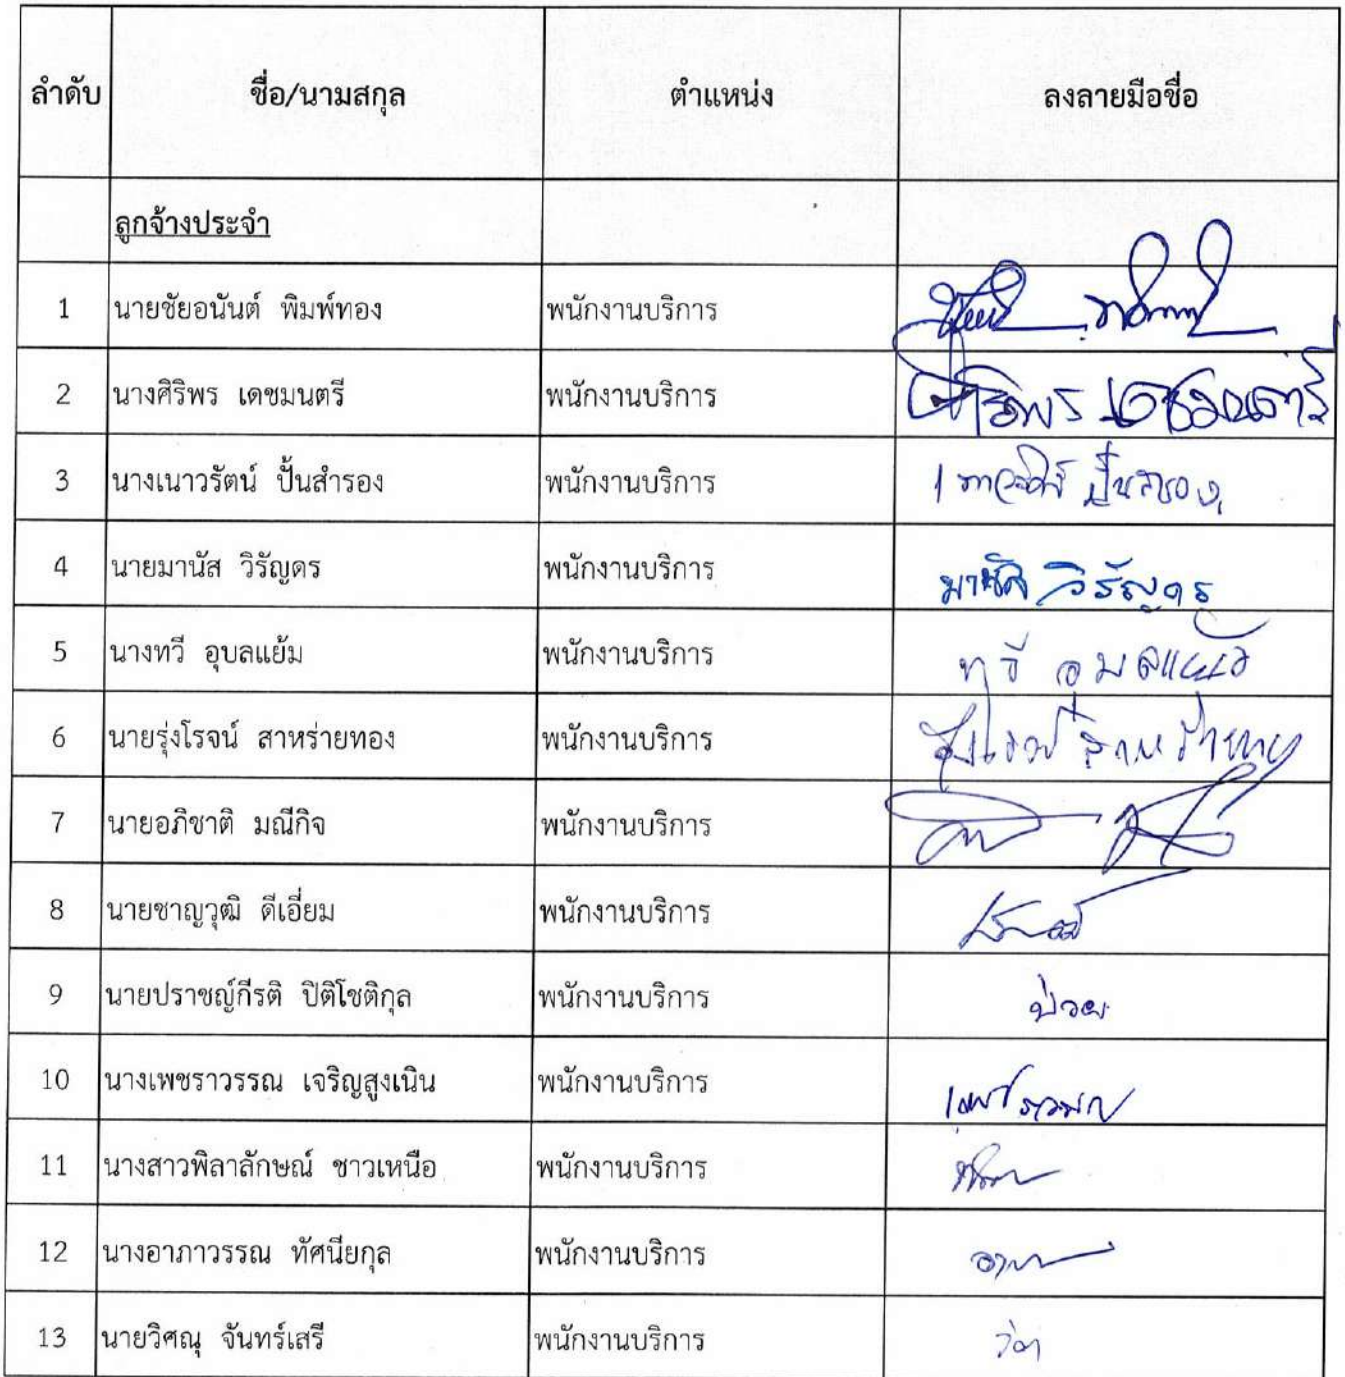 ลำดับ ชื่อ/นามสกุล ตำแหน่ง ลงลายมือชื่อ
ลูกจ้างประจำ
1 นายชัยอนันต์ พิมพ์ทอง พนักงานบริการ
2 นางศิริพร เดชมนตรี พนักงานบริการ ศิริพร เดชมนตรี
3 นางเนาวรัตน์ ปั้นสำรอง พนักงานบริการ
4 นายมานัส วิรัญดร พนักงานบริการ มานัส วิรัญดร
5 นางทวี อุบลแย้ม พนักงานบริการ ทวี อุบลแย้ม
6 นายรุ่งโรจน์ สาหร่ายทอง พนักงานบริการ รุ่งโรจน์ สาหร่ายทอง
7 นายอภิชาติ มณีกิจ พนักงานบริการ
8 นายชาญวุฒิ ดีเอี่ยม พนักงานบริการ
9 นายปราชญ์กีรติ ปิติโชติกุล พนักงานบริการ ป่วย
10 นางเพชราวรรณ เจริญสูงเนิน พนักงานบริการ
11 นางสาวพิลาลักษณ์ ชาวเหนือ พนักงานบริการ
12 นางอาภาวรรณ ทัศนียกุล พนักงานบริการ
13 นายวิศณุ จันทร์เสรี พนักงานบริการ